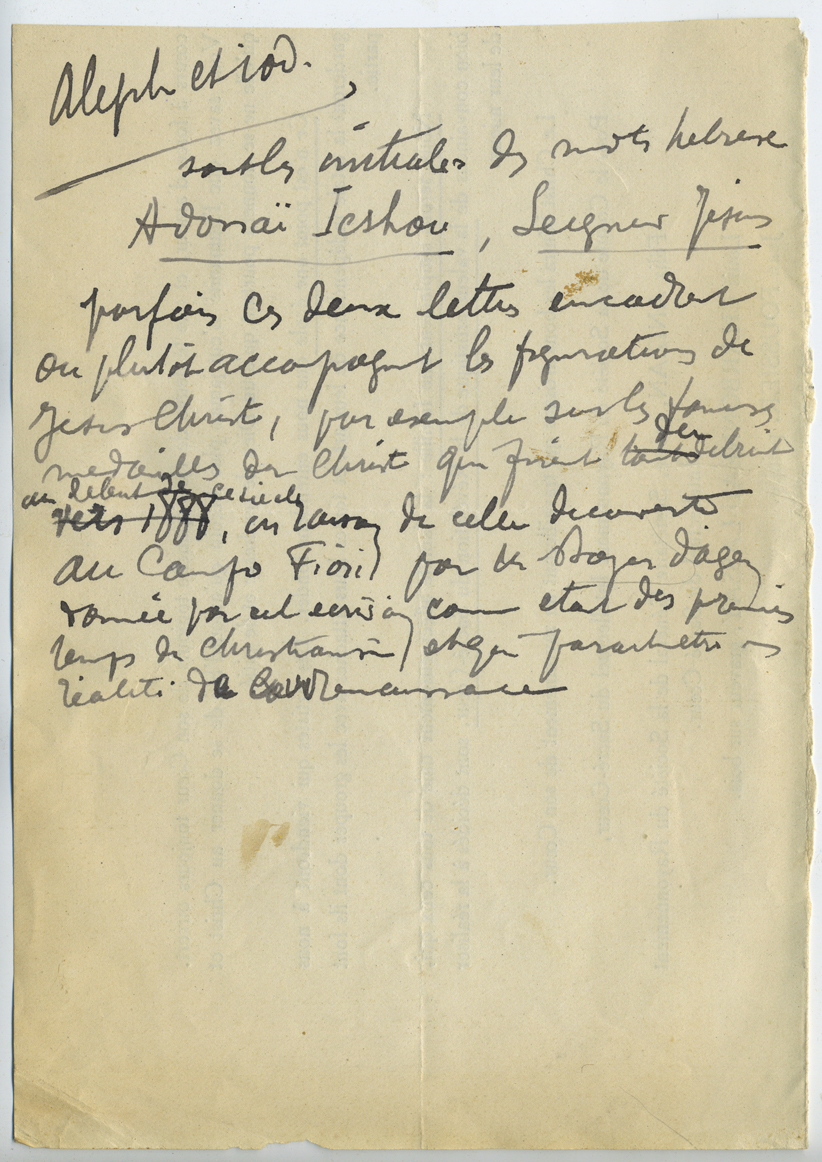 Aleph et iod.
sont les initiales des mots hebreux
Adonaï Ieshou, Seigneur Jésus
parfois ces deux lettres encadrent
ou plutôt accompagnent les figurations de
Jésus Christ, par exemple sur les fameuses
medailles du Christ qui firent tant du bruit
au debut de ce siecle
vers 1888, en raison de celle decouverte
au Campo Fiori par Mr Boyer d'agen
donnée par cet ecrivain comme etant des premiers
temps du Christianisme et qui parait etre en
réalité de la renaissance